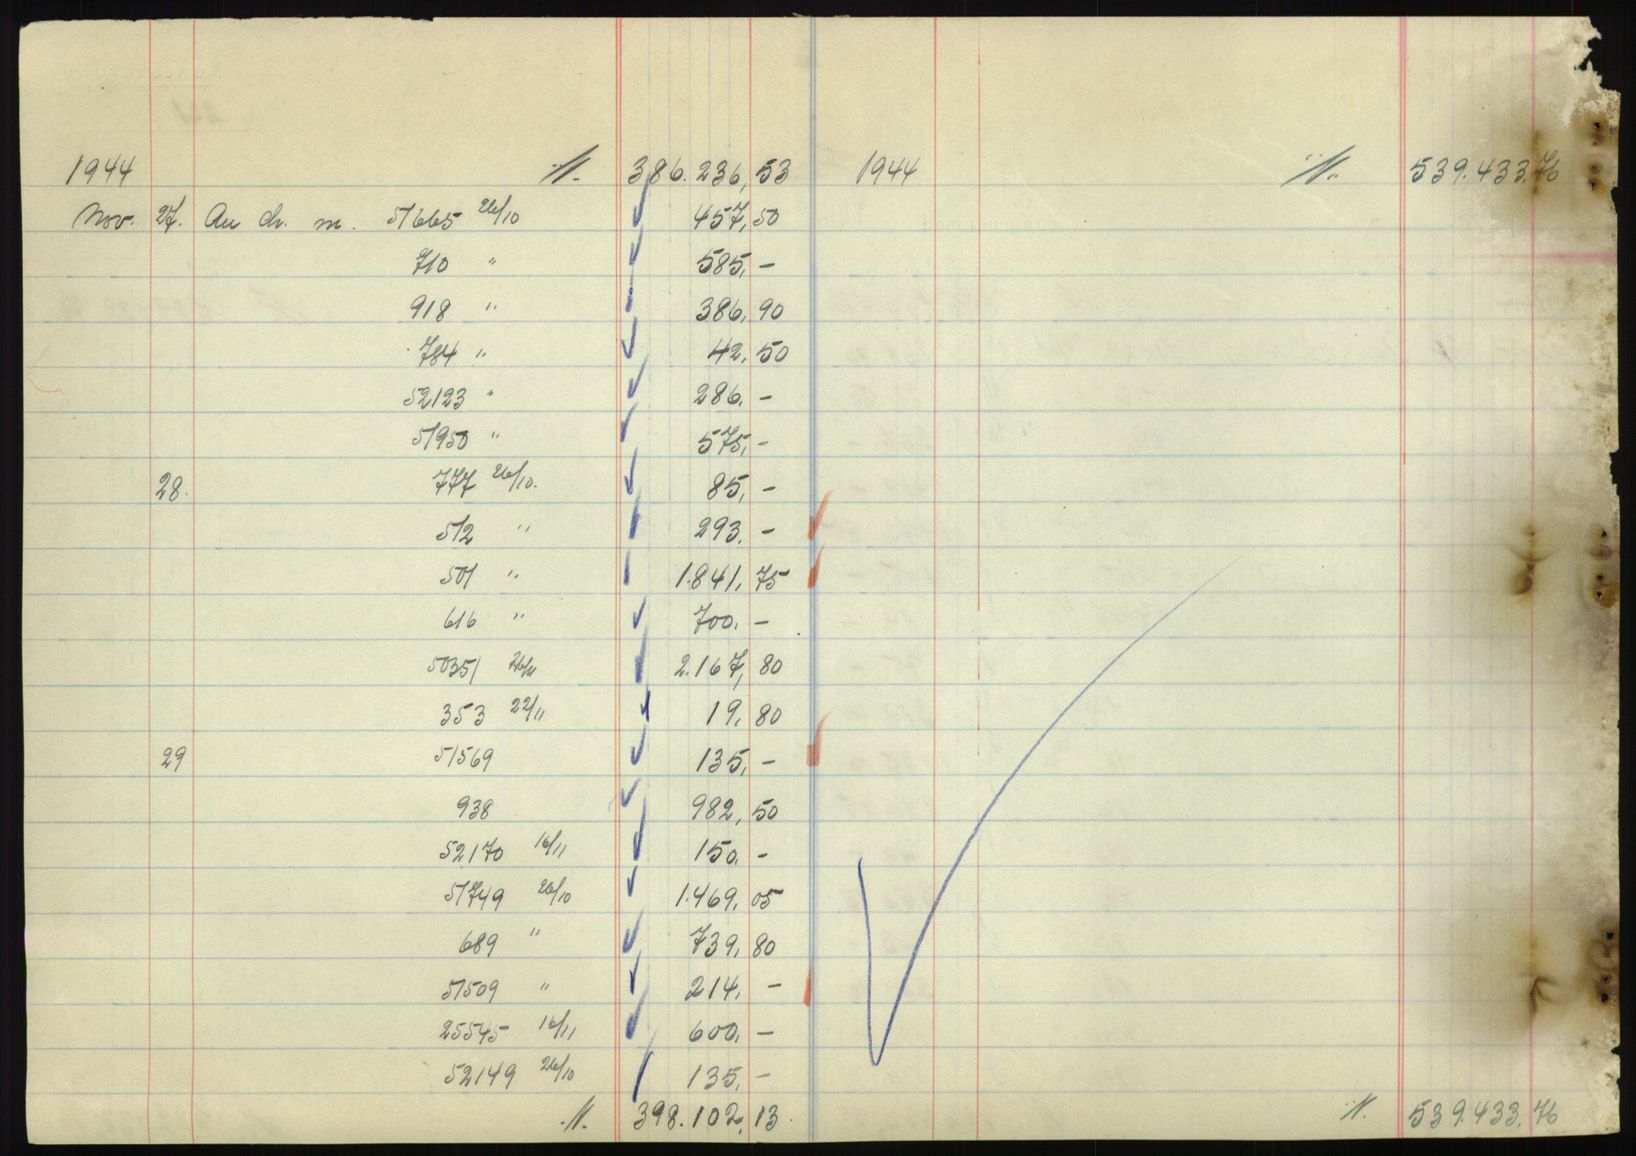 1944 ./. 386.236,53 1944 ./. 539.433.76
Nov. 27. An ch. m. 51665 26/10 457,50
710 " 585,-
918 " 386,90
784 " 42,50
52123 " 286.-
51950 " 575,-
28. 777 26/10. 85,-
512 " 293.-
501 " 1.841,75
616 " 700.-
50351 2.167,80
353 22/11 19,80
29 51569 135,-
938 982,50
52170 16/11 150.-
51749 26/10 1.469,05
689 " 739,80
51509 " 214.-
25545 16/11 600,-
52149 26/10 135,-
./. 398.102,13 ./. 539.433.76